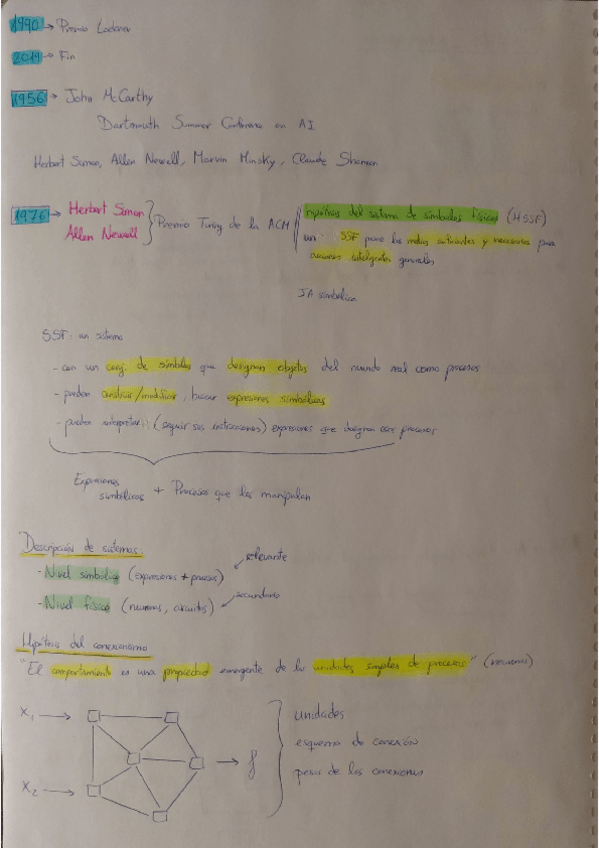 1990 → Premio Loebner
2019 → Fin
1956 → John McCarthy
Dartmouth Summer Conference on AI
Herbert Simon, Allen Newell, Marvin Minsky, Claude Shannon
1976 → Herbert Simon
Allen Newell } Premio Turing de la ACM
Hipótesis del sistema de símbolos físicos (HSSF)
un SSF posee los medios suficientes y necesarios para
acciones inteligentes generales
IA simbólica
SSF: un sistema
- con un conj. de símbolos que designan objetos del mundo real como procesos
- pueden construir/modificar, buscar expresiones simbólicas
- pueden interpretar (seguir sus instrucciones) expresiones que designan esos procesos
Expresiones
simbólicas + Procesos que las manipulan
Descripción de sistemas:
- Nivel simbólico (expresiones + procesos) relevante
- Nivel físico (neuronas, circuitos) secundario
Hipótesis del conexionismo
"El comportamiento es una propiedad emergente de las unidades simples de proceso" (neuronas)
X1 →
X2 →
→ f
unidades
esquema de conexión
pesos de las conexiones